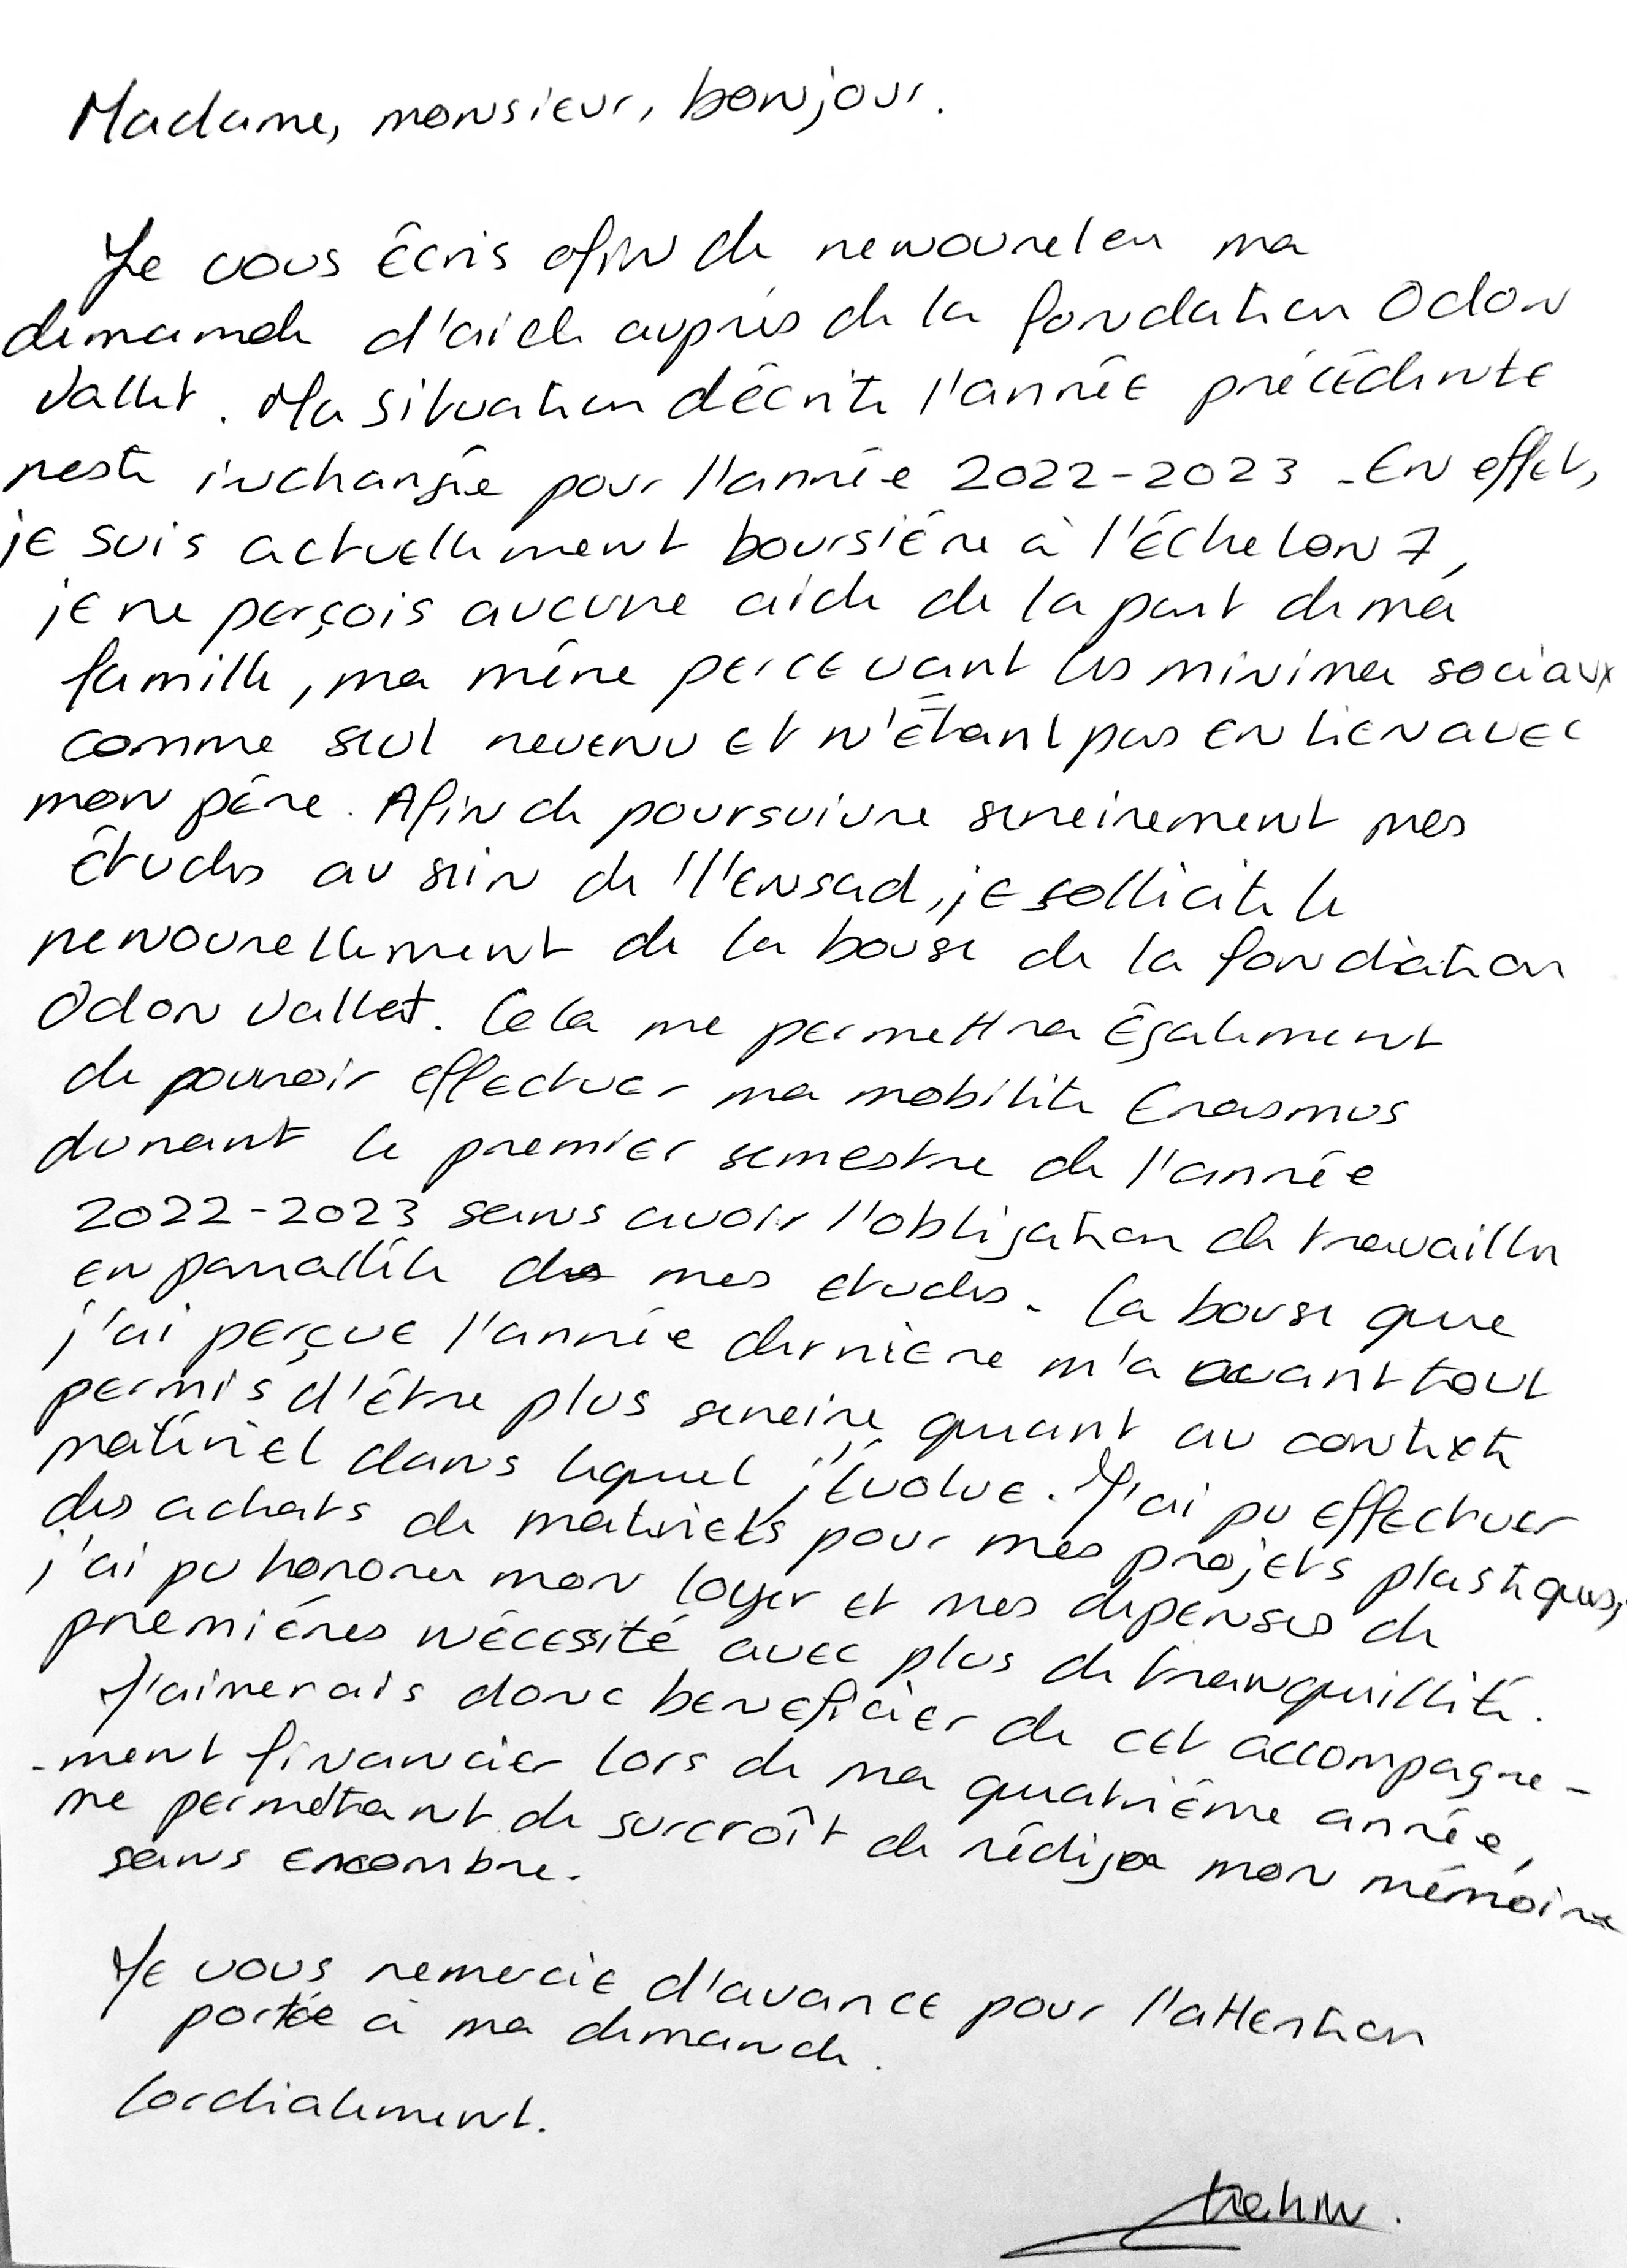 Madame, monsieur, bonjour.
Je vous écris afin de renouveler ma
demande d'aide auprès de la fondation Odon
Vallet. Ma situation décrite l'année précédente
reste inchangée pour l'année 2022-2023. En effet,
je suis actuellement boursière à l'échelon 7,
je ne perçois aucune aide de la part de ma
famille, ma mère percevant les minima sociaux
comme seul revenu et n'étant pas en lien avec
mon père. Afin de poursuivre sereinement mes
études au sein de l'ensad, je sollicite le
renouvellement de la bourse de la fondation
Odon Vallet. Cela me permettra également
de pouvoir effectuer ma mobilité Erasmus
durant le premier semestre de l'année
2022-2023 sans avoir l'obligation de travailler
en parallèle de mes etudes. La bourse que
j'ai perçue l'année dernière m'a avant tout
permis d'être plus sereine quant au contexte
matériel dans lequel j'évolue. J'ai pu effectuer
des achats de matériels pour mes projets plastiques,
j'ai pu honorer mon loyer et mes dépenses de
premières nécessité avec plus de tranquillité.
J'aimerais donc beneficier de cet accompagne-
-ment financier lors de ma quatrième année,
me permettant de surcroît de rédiger mon mémoire
sans encombre.
Je vous remercie d'avance pour l'attention
portée à ma demande.
Cordialement.